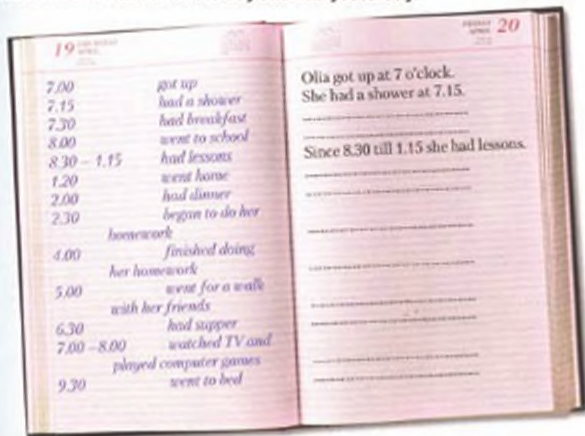 19
APRIL
7.00 got up
7.15 had a shower
7.30 had breakfast
8.00 went to school
8.30 – 1.15 had lessons
1.20 went home
2.00 had dinner
2.30 began to do her
homework
4.00 finished doing
her homework
5.00 went for a walk
with her friends
6.30 had supper
7.00 –8.00 watched TV and
played computer games
9.30 went to bed
FRIDAY
APRIL 20
Olia got up at 7 o'clock.
She had a shower at 7.15.
Since 8.30 till 1.15 she had lessons.